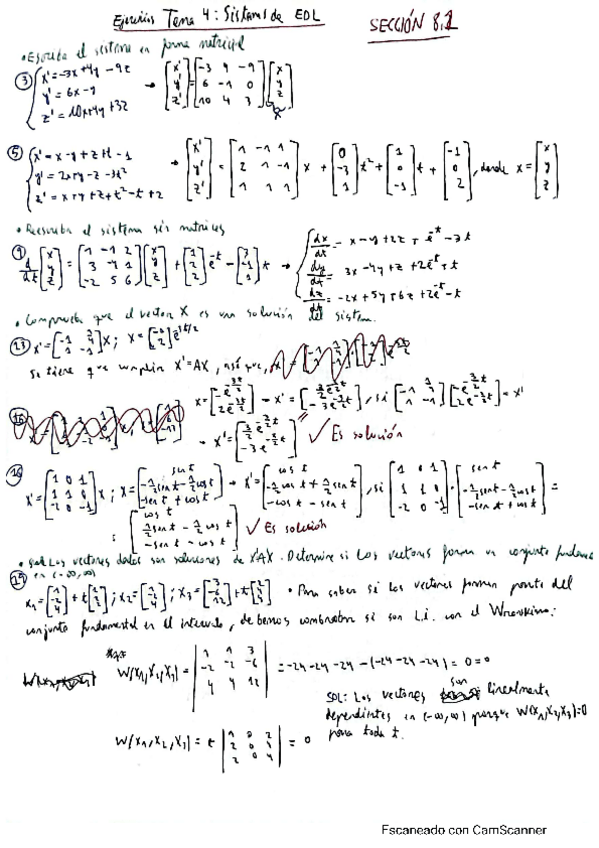 Ejercicios Tema 4: Sistemas de EDL
SECCIÓN 8.1
• Escriba el sistema en forma matricial
③ { x' = -3x+4y-9z
y' = 6x-y
z' = 10x+4y+3z
→ [x' y' z'] = [-3 4 -9; 6 -1 0; 10 4 3] [x y z]
X
⑤ { x' = x-y+z+t-1
y' = 2x+y-z-3t²
z' = x+y+z+t²-t+2
→ [x' y' z'] = [1 -1 1; 2 1 -1; 1 1 1] x + [0 -3 1] t² + [1 0 -1] t + [-1 0 2], donde x = [x y z]
• Reescriba el sistema sin matrices
⑨ d/dt [x y z] = [1 -1 2; 3 -4 1; -2 5 6] [x y z] + [1 2 2] e^-t - [3 -1 1] t →
{ dx/dt = x-y+2z+e^-t-3t
dy/dt = 3x-4y+z+2e^-t+t
dz/dt = -2x+5y+6z+2e^-t-t
• Compruebe que el vector X es una solución del sistema.
⑬ X' = [-1 1/4; 1 -1] X; X = [-1 2] e^-3t/2
Se tiene que cumplir X'=AX, así que,
X = [-e^-3/2t 2e^-3/2t] → X' = [3/2 e^-3/2t -3e^-3/2t], si [-1 1/4; 1 -1] [-e^-3/2t 2e^-3/2t] = X'
→ X' = [3/2 e^-3/2t -3e^-3/2t] ✓ Es solución
⑯ X' = [1 0 1; 1 1 0; -2 0 -1] X; X = [sen t -1/2 sen t - 1/2 cos t -sen t + cos t] → X' = [cos t -1/2 cos t + 1/2 sen t -cos t - sen t], si [1 0 1; 1 1 0; -2 0 -1] · [sen t -1/2 sent - 1/2 cos t -sen t + cos t] =
= [cos t 1/2 sen t - 1/2 cos t -sen t - cos t] ✓ Es solución
Los vectores dados son soluciones de X'=AX. Determine si los vectores forman un conjunto fundame
en (-∞,∞)
⑲ X₁ = [1 -2 4] + t [1 2 2]; X₂ = [1 -2 4]; X₃ = [3 -6 12] + t [2 4 4] • Para saber si los vectores forman parte del
conjunto fundamental en el intervalo, debemos comprobar si son L.i. con el Wronskiano:
W(X₁,X₂,X₃) = |1 1 3; -2 -2 -6; 4 4 12| = -24-24-24-(-24-24-24) = 0 = 0
SOL: Los vectores son linealmente
dependientes en (-∞,∞) porque W(X₁,X₂,X₃)=0
para toda t.
W(X₁,X₂,X₃) = t |1 0 2; 2 0 4; 2 0 4| = 0
Escaneado con CamScanner